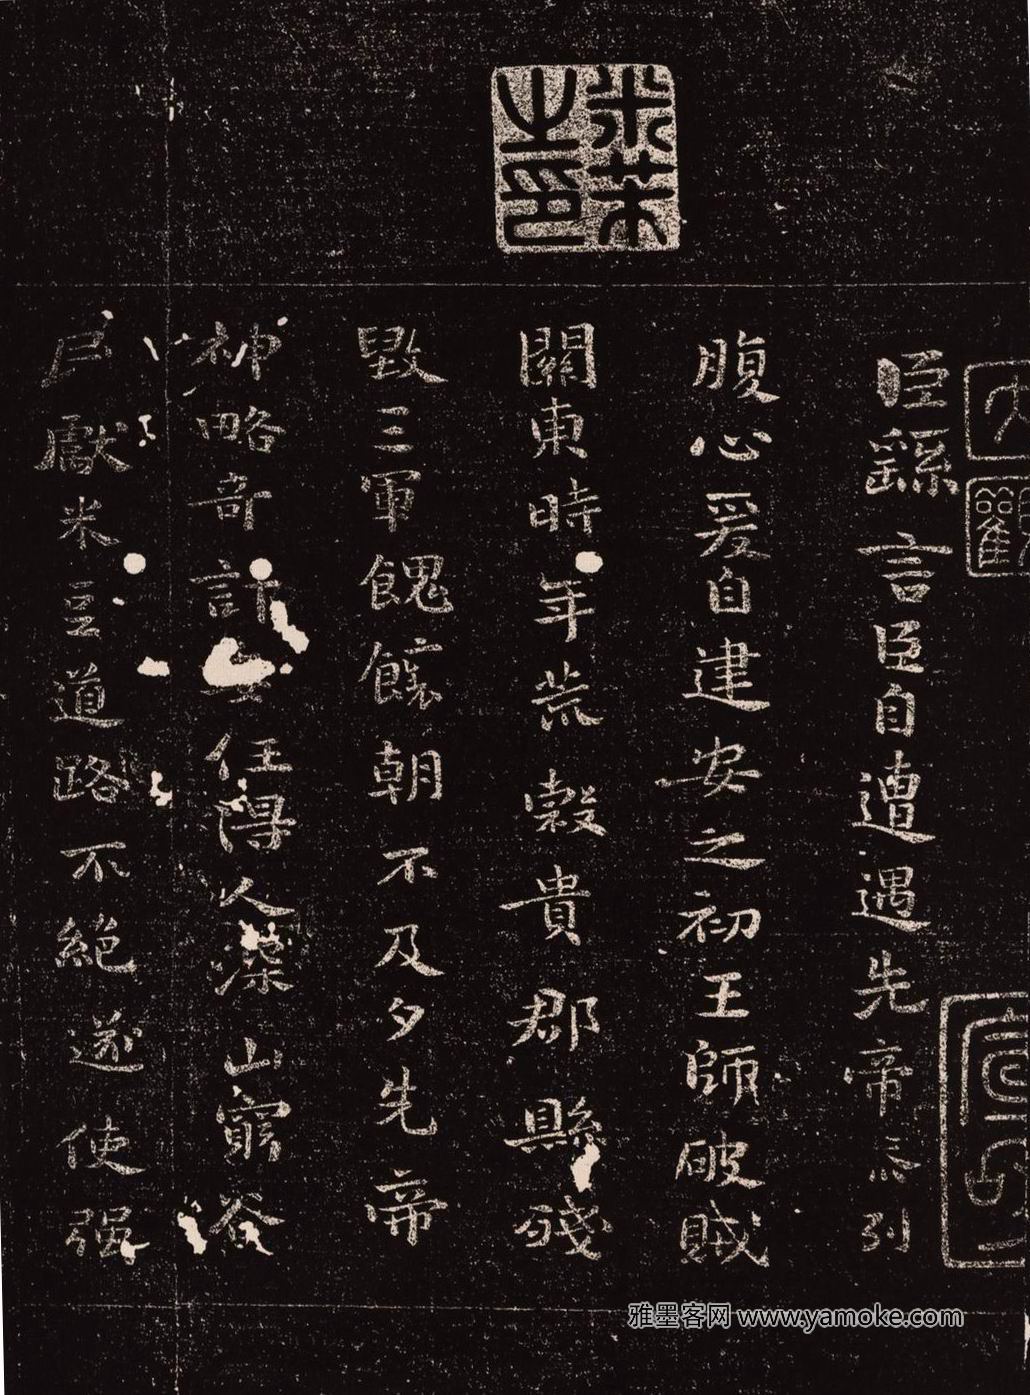 米芾之印
臣繇言臣自遭遇先帝忝列
腹心爰自建安之初王師破賊
關東時年荒穀貴郡縣殘
毀三軍餽饟朝不及夕先帝
神略奇計委任得人深山窮谷
民獻米豆道路不絕遂使强
雅墨客网 www.yamoke.com